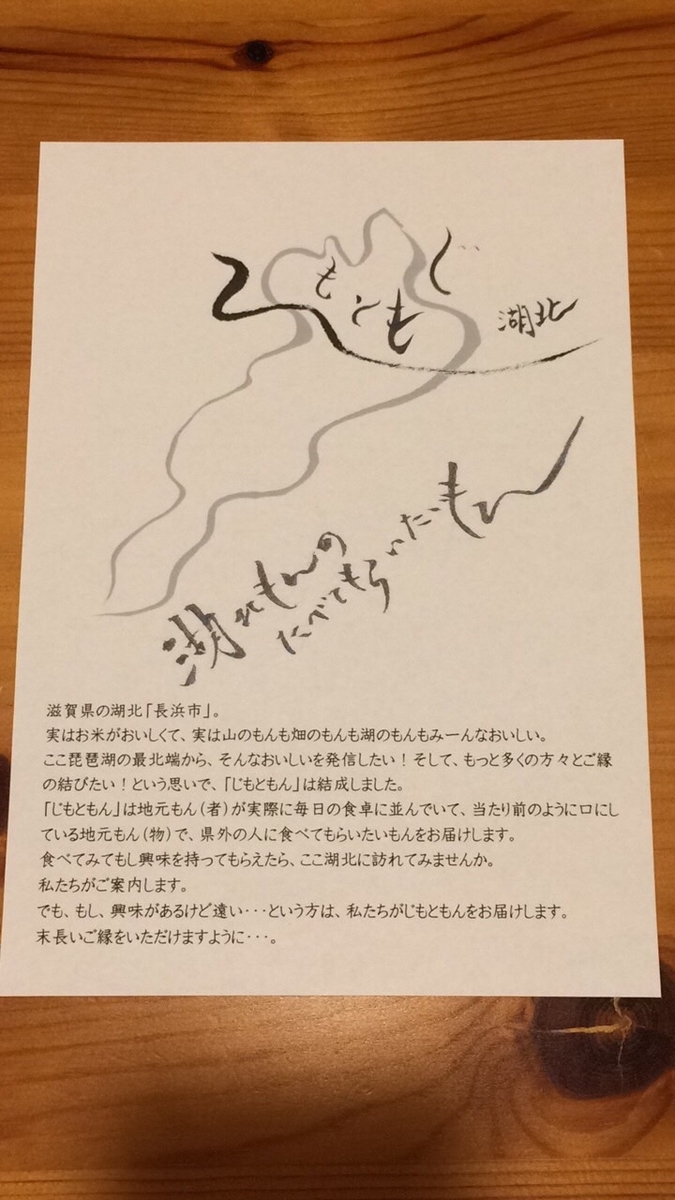 じもともん
湖北
湖北もんの
たべてもらいたいもん
滋賀県の湖北「長浜市」。
実はお米がおいしくて、実は山のもんも畑のもんも湖のもんもみーんなおいしい。
ここ琵琶湖の最北端から、そんなおいしいを発信したい！そして、もっと多くの方々とご縁
の結びたい！という思いで、「じもともん」は結成しました。
「じもともん」は地元もん（者）が実際に毎日の食卓に並んでいて、当たり前のように口にし
ている地元もん（物）で、県外の人に食べてもらいたいもんをお届けします。
食べてみてもし興味を持ってもらえたら、ここ湖北に訪れてみませんか。
私たちがご案内します。
でも、もし、興味があるけど遠い・・・という方は、私たちがじもともんをお届けします。
末長いご縁をいただけますように・・・。